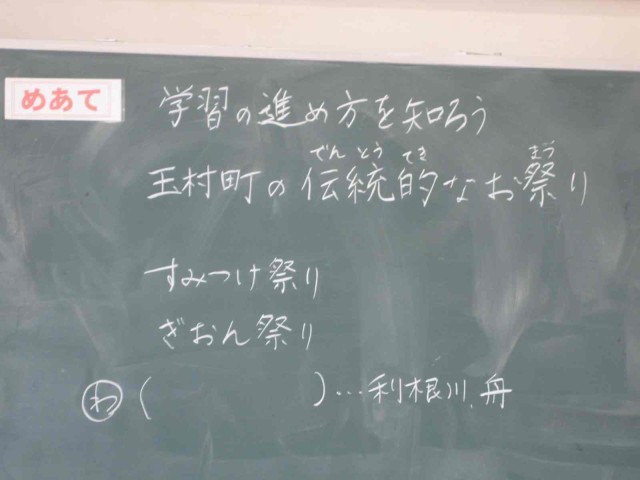 めあて
学習の進め方を知ろう
でんとうてき まつ
玉村町の伝統的なお祭り
すみつけ祭り
ぎおん祭り
わ（　　　　　）…利根川、舟